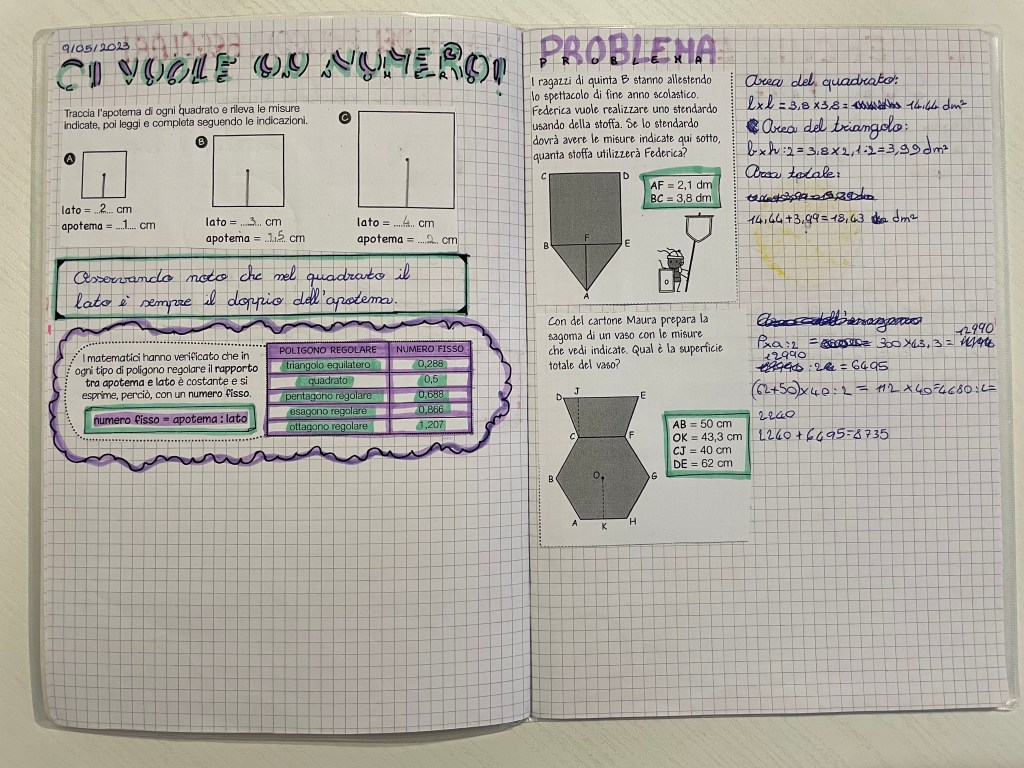 9/05/2023
CI VUOLE UN NUMERO!
Traccia l'apotema di ogni quadrato e rileva le misure
indicate, poi leggi e completa seguendo le indicazioni.
A
B
C
lato = ..2.. cm
apotema = ..1.. cm
lato = ..3.. cm
apotema = ..1,5.. cm
lato = ..4.. cm
apotema = ..2.. cm
Osservando noto che nel quadrato il
lato è sempre il doppio dell'apotema.
I matematici hanno verificato che in
ogni tipo di poligono regolare il rapporto
tra apotema e lato è costante e si
esprime, perciò, con un numero fisso.
numero fisso = apotema : lato
POLIGONO REGOLARE NUMERO FISSO
triangolo equilatero 0,288
quadrato 0,5
pentagono regolare 0,688
esagono regolare 0,866
ottagono regolare 1,207
PROBLEMA
PROBLEMA
I ragazzi di quinta B stanno allestendo
lo spettacolo di fine anno scolastico.
Federica vuole realizzare uno stendardo
usando della stoffa. Se lo stendardo
dovrà avere le misure indicate qui sotto,
quanta stoffa utilizzerà Federica?
C D
B F E
A
AF = 2,1 dm
BC = 3,8 dm
Area del quadrato:
l x l = 3,8 x 3,8 = 14,44 dm²
Area del triangolo:
b x h : 2 = 3,8 x 2,1 : 2 = 3,99 dm²
Area totale:
14,44 + 3,99 = 18,43 dm²
Con del cartone Maura prepara la
sagoma di un vaso con le misure
che vedi indicate. Qual è la superficie
totale del vaso?
D J E
C F
B O G
A K H
AB = 50 cm
OK = 43,3 cm
CJ = 40 cm
DE = 62 cm
P x a : 2 = 300 x 43,3 = 12990
12990 : 2 = 6495
(62+50) x 40 : 2 = 112 x 40 = 4480 : 2 =
2240
2240 + 6495 = 8735